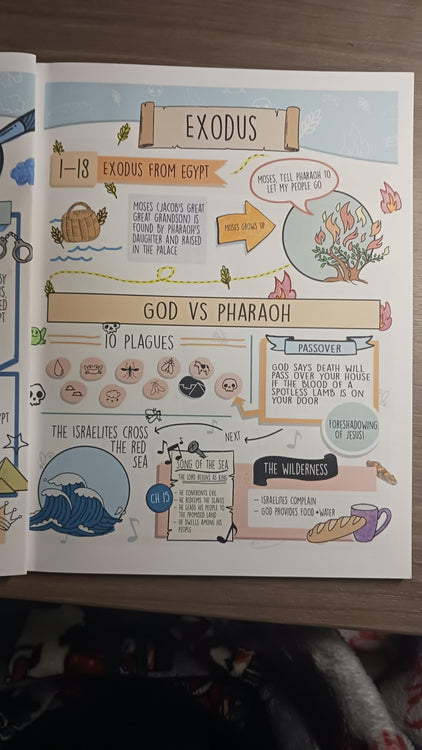 EXODUS
1-18 EXODUS FROM EGYPT
MOSES, TELL PHARAOH TO
LET MY PEOPLE GO
MOSES (JACOB'S GREAT
GREAT GRANDSON) IS
FOUND BY PHARAOH'S
DAUGHTER AND RAISED
IN THE PALACE
MOSES GROWS UP
GOD VS PHARAOH
10 PLAGUES
PASSOVER
GOD SAYS DEATH WILL
PASS OVER YOUR HOUSE
IF THE BLOOD OF A
SPOTLESS LAMB IS ON
YOUR DOOR
FORESHADOWING
OF JESUS!
THE ISRAELITES CROSS
THE RED
SEA
NEXT
SONG OF THE SEA
THE LORD REIGNS AS KING
CH 15
- HE CONFRONTS EVIL
- HE REDEEMS THE SLAVES
- HE LEADS HIS PEOPLE TO
THE PROMISED LAND
- HE DWELLS AMONG HIS
PEOPLE
THE WILDERNESS
- ISRAELITES COMPLAIN
- GOD PROVIDES FOOD + WATER